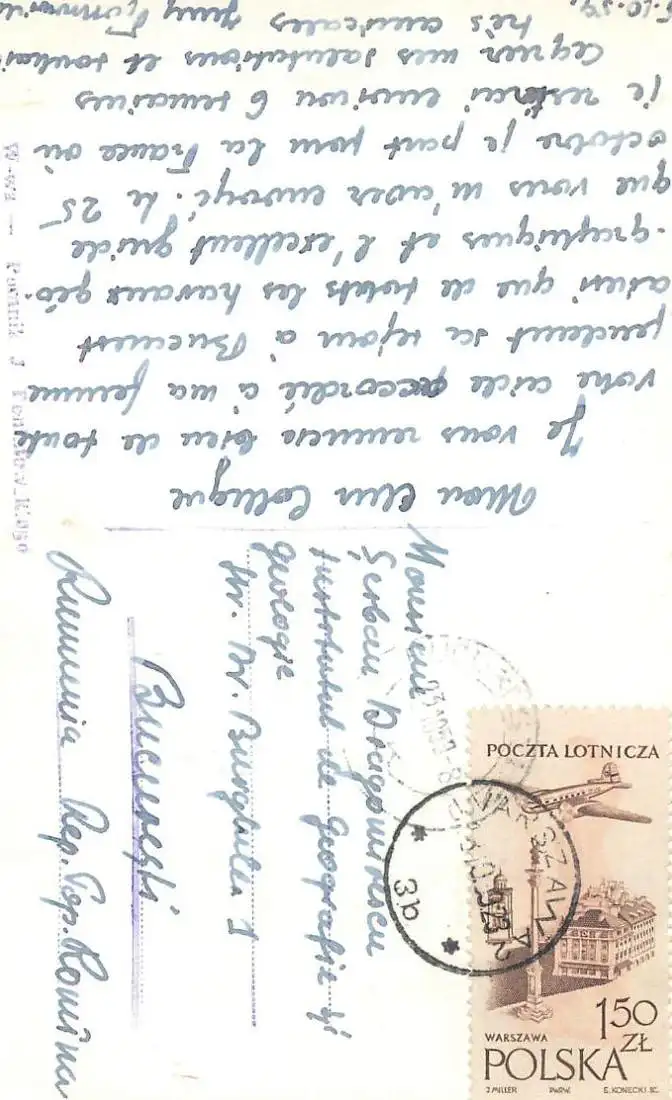 Mon cher Collègue
Je vous remercie bien de toute
votre aide accordée à ma femme
pendent sa sejour à Bucarest
ainsi que de touts les travaux géo-
-graphiques et l'excellent guide
que vous m'avez envoyé. Le 25
octobre je part pour la France où
je resterai environ 6 semaines
Agréez mes salutations et souhaits
très amicales
Monsieur
Șerban Dragomirescu
Institutul de Geografie și
Geologie
Str. Dr. Burghelea 1
București
Rumunia Rep. Pop. Romina
POCZTA LOTNICZA
WARSZAWA
1.50 ZŁ
POLSKA
J. MILLER PWPW. E. KONECKI SC.
WARSZAWA 2
3b